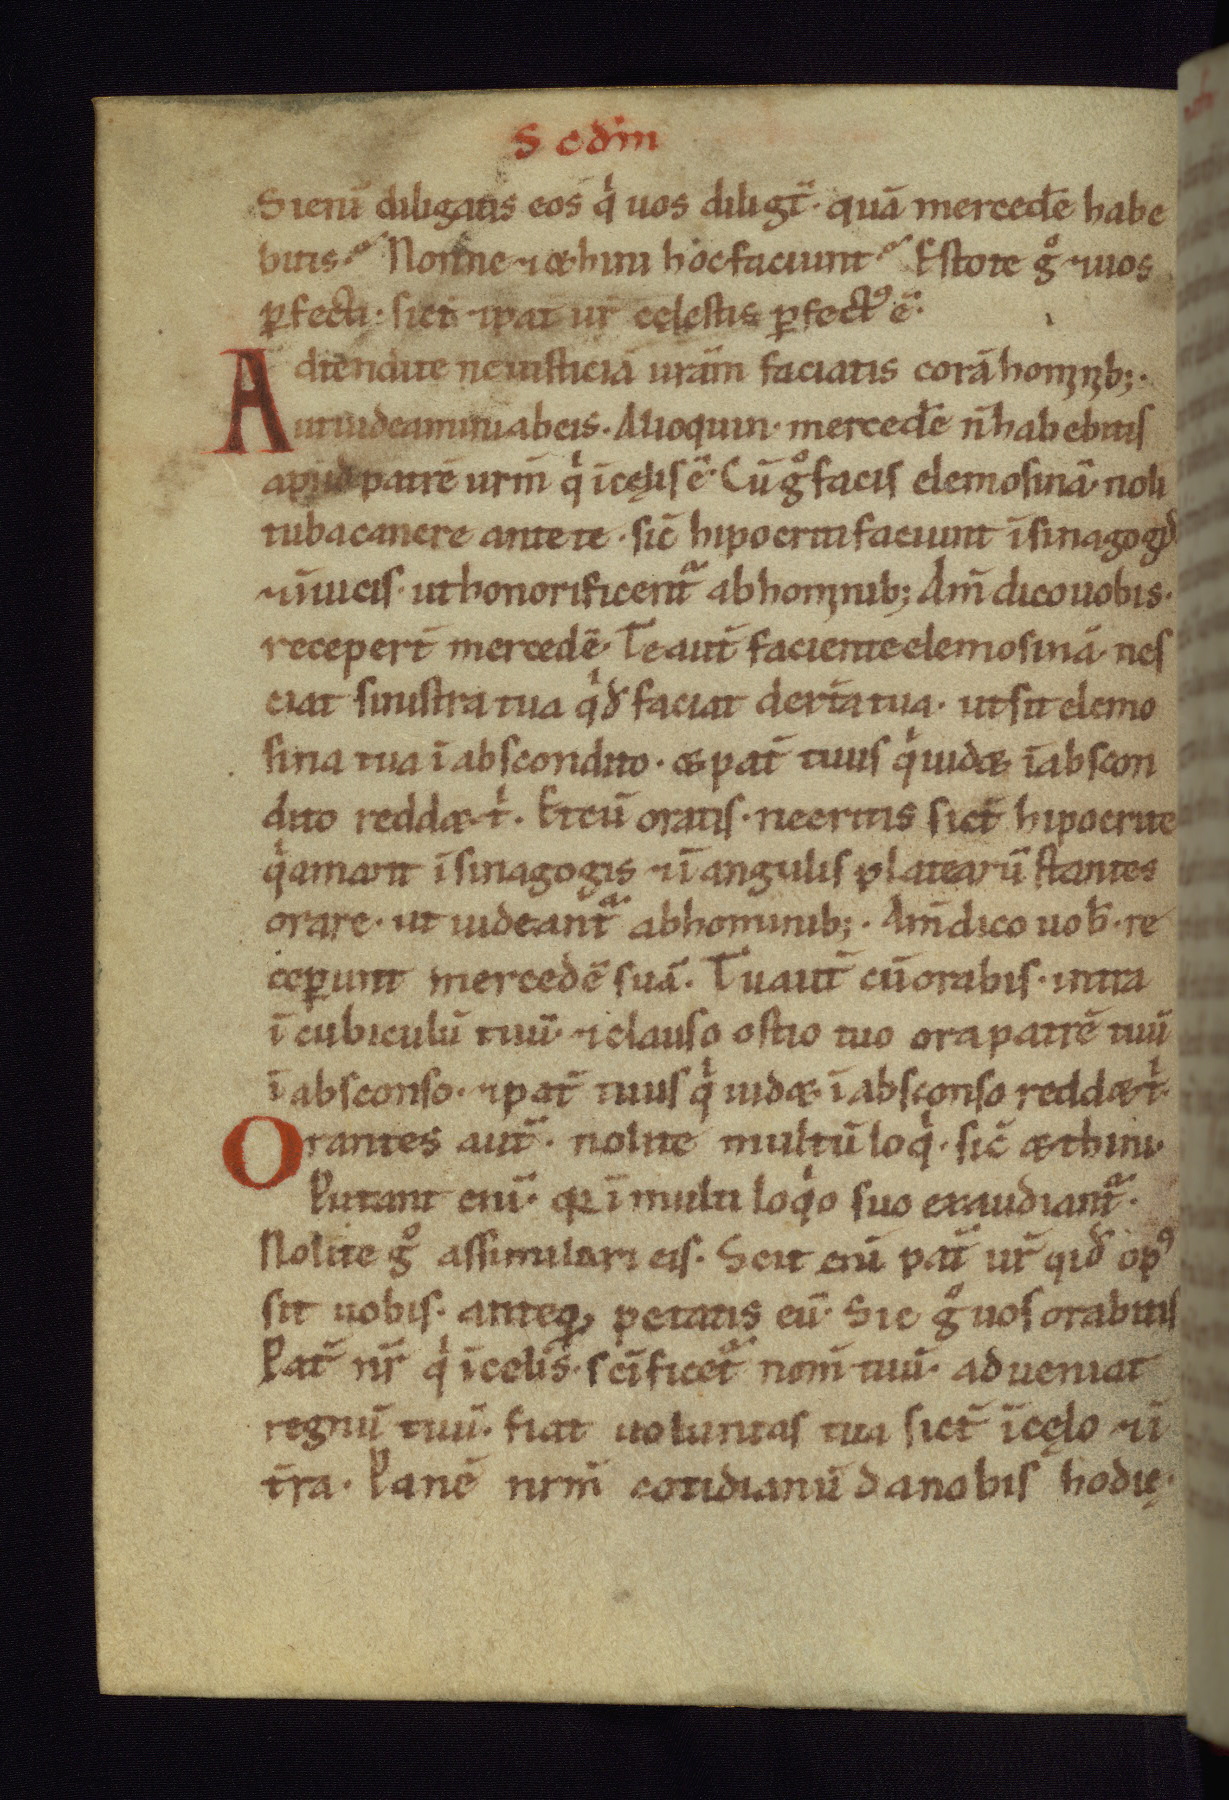 S cdm̄
Si enī diligatis eos q̇ uos diligt̄· quā mercedē habe
bitis· Nonne ⁊ æthnici hoc faciunt· Estote gͦ ⁊ uos
ꝑfecti· sicť ⁊ pať ur̄ cęlestis ꝑfectꝰ ē·
Adtendite ne iusticiā urām faciatis corā hominib;·
ut uideamini ab eis· Alioquin· mercedē n̄ habebitis
apud patrē urm̄ q̇ ī cęlis ē· Cū gͦ facis elemosinā· noli
tuba canere ante te· sic̄ hipocriti faciunt ī sinagogis
⁊ ī uicis· ut honorificent̄ ab hominib; Am̄ dico uobis·
recepert̄ mercedē· Te aut̄ faciente elemosinā· nes
ciat sinistra tua qͥd faciat dext̄a tua· ut sit elemo
sina tua ī abscondito· & pat̄ tuus q̇ uidæ ī abscon
dito reddæ t̄· Et cū oratis· n̄ eritis sict̄ hipocrite
q̇ amant ī sinagogis ⁊ ī angulis platearū stantes
orare· ut uideant̄ ab hominib;· Am̄ dico uob̄· re
ceꝑunt mercedē suā· Tu aut̄ cū orabis· intra
ī cubiculū tuū· ⁊ clauso ostio tuo ora patrē tuū
ī absconso· ⁊ pat̄ tuus q̇ uidæ ī absconso reddæ t̄·
Orantes aut̄· nolite multū loq̇· sic̄ æthnici·
Putant enī· qꝛ ī multi loq̇o suo exaudiant̄·
Nolite gͦ assimilari eis· Scit enī pat̄ ur̄ qid op̄ꝰ
sit uobis· anteqꝫ petatis eū· Sic gͦ uos orabitis
Pat̄ nr̄ q̇ ī celis· scīficet̄ nom̄ tuū· adueniat
regnū tuū· fiat uoluntas tua sict̄ ī cęlo ⁊ ī
t̄ra· Panē nrm̄ cotidianū da nobis hodię·